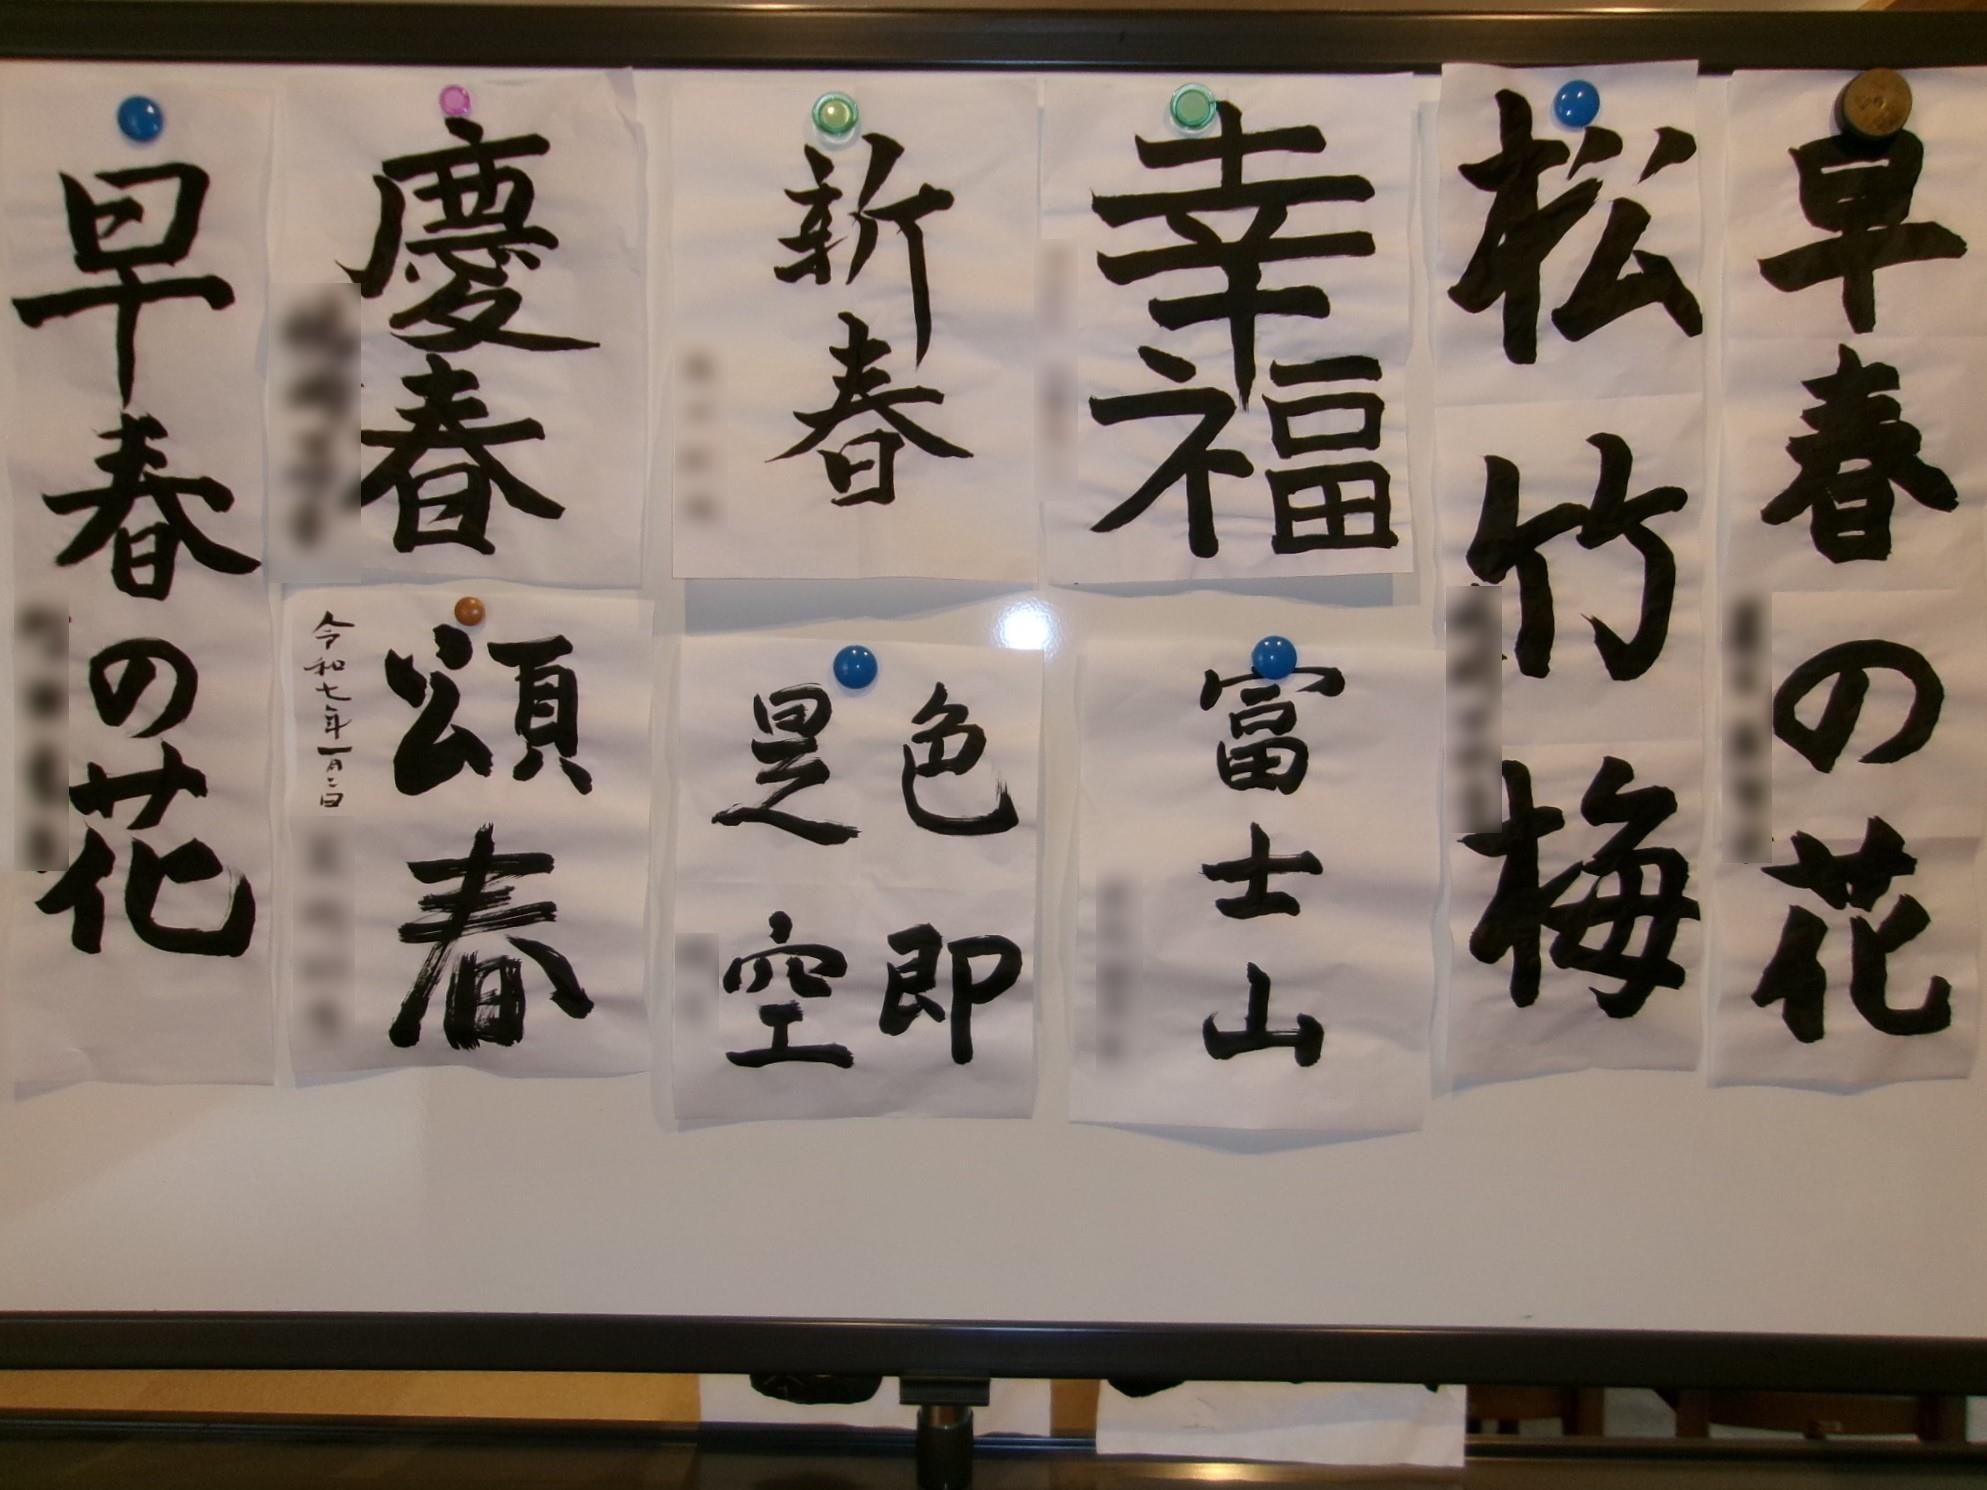 早春の花
松竹梅
幸福
富士山
新春
色即
是空
慶春
頌春
令和七年一月二日
早春の花